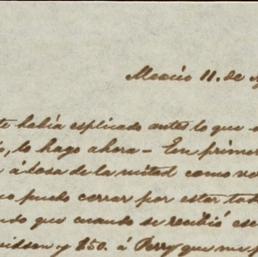 Mexico 11. de
te habia esplicado antes lo que
, lo hago ahora - En primer
á dosa de la mitad como
pude cerrar por estar
do que cuando se recibió
y $50. á Perry que me